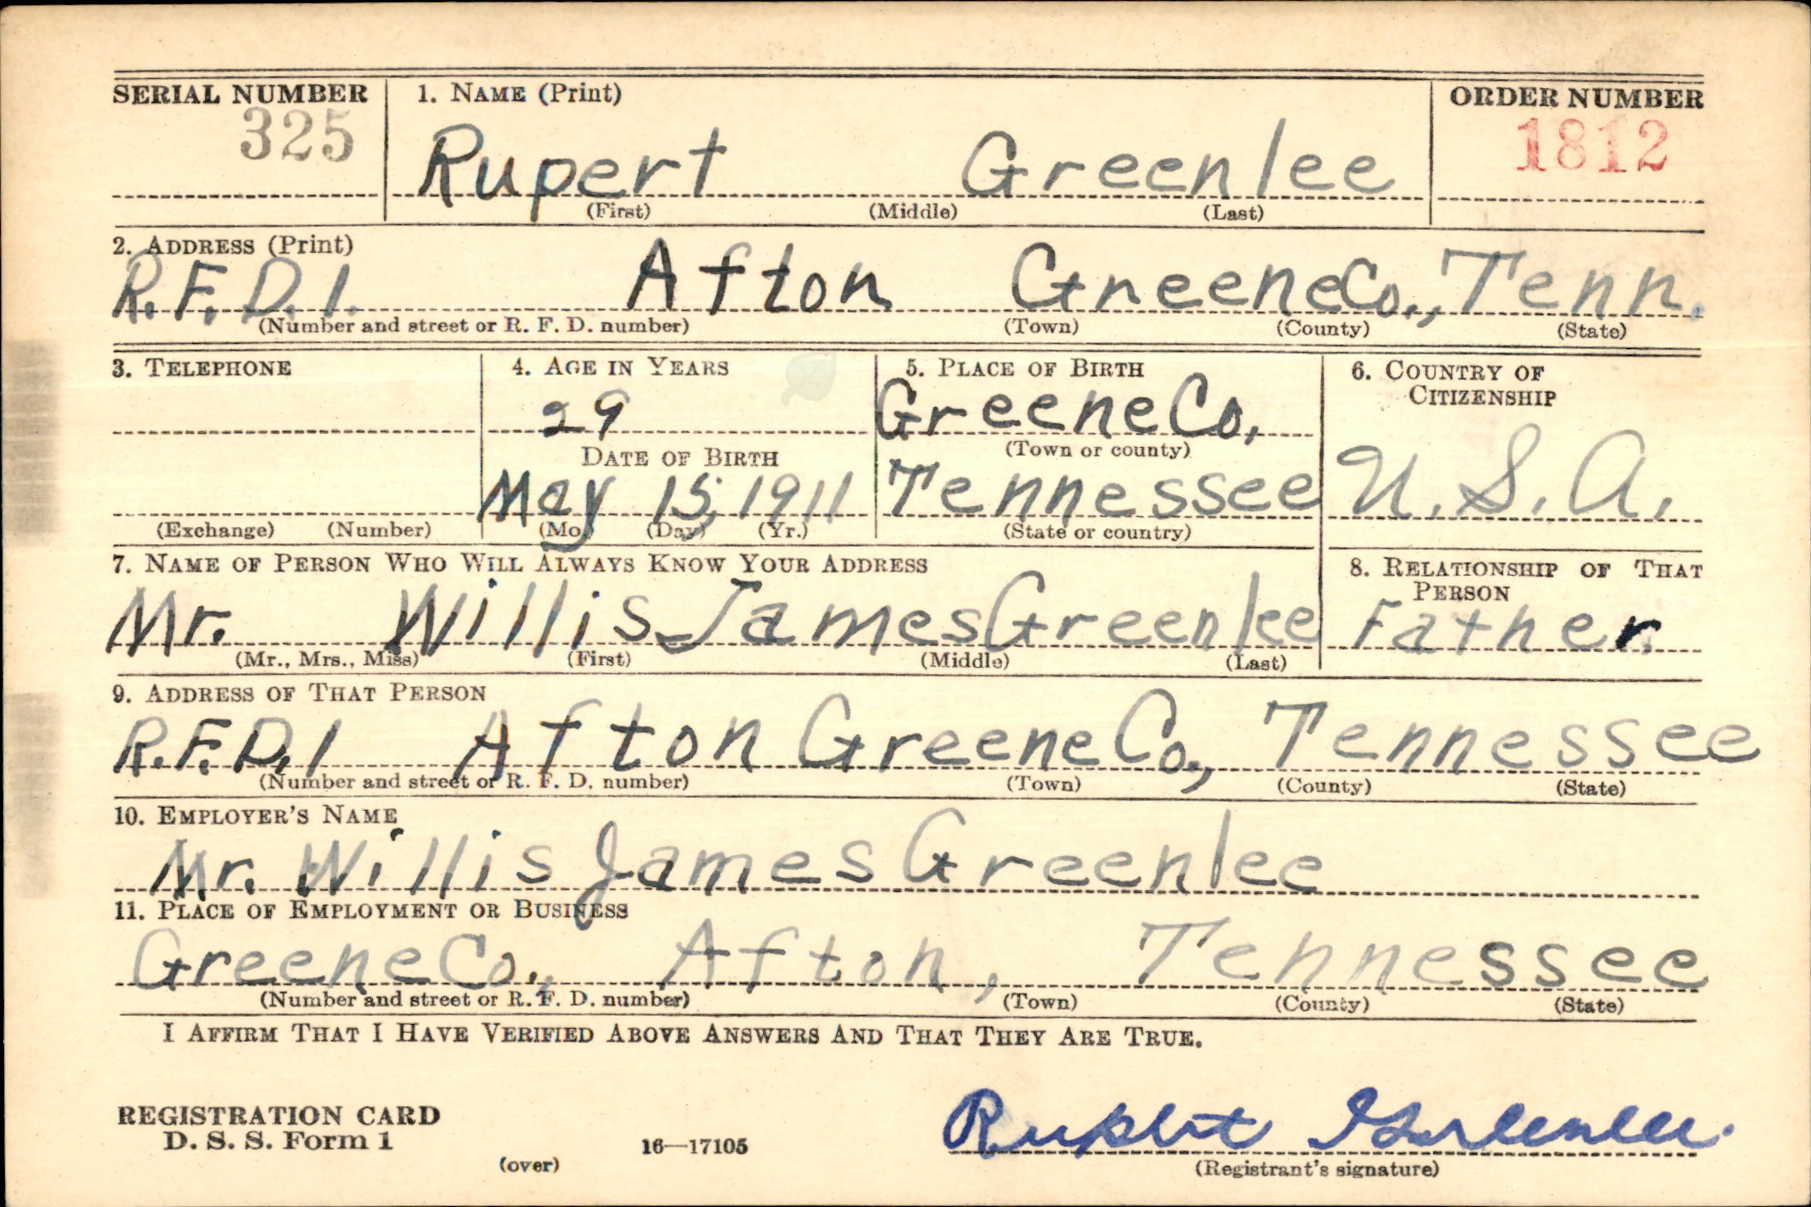 SERIAL NUMBER 1. NAME (Print) ORDER NUMBER
325 Rupert Greenlee 1812
(First) (Middle) (Last)
2. ADDRESS (Print)
R.F.D.1. Afton Greene Co., Tenn.
(Number and street or R. F. D. number) (Town) (County) (State)
3. TELEPHONE 4. AGE IN YEARS 5. PLACE OF BIRTH 6. COUNTRY OF CITIZENSHIP
29 Greene Co.
DATE OF BIRTH (Town or county)
May 15, 1911 Tennessee U.S.A.
(Exchange) (Number) (Mo.) (Day) (Yr.) (State or country)
7. NAME OF PERSON WHO WILL ALWAYS KNOW YOUR ADDRESS 8. RELATIONSHIP OF THAT PERSON
Mr. Willis James Greenlee Father
(Mr., Mrs., Miss) (First) (Middle) (Last)
9. ADDRESS OF THAT PERSON
R.F.D.1 Afton Greene Co., Tennessee
(Number and street or R. F. D. number) (Town) (County) (State)
10. EMPLOYER'S NAME
Mr. Willis James Greenlee
11. PLACE OF EMPLOYMENT OR BUSINESS
Greene Co., Afton, Tennessee
(Number and street or R. F. D. number) (Town) (County) (State)
I AFFIRM THAT I HAVE VERIFIED ABOVE ANSWERS AND THAT THEY ARE TRUE.
REGISTRATION CARD
D. S. S. Form 1 16—17105 Rupert Greenlee
(over) (Registrant's signature)